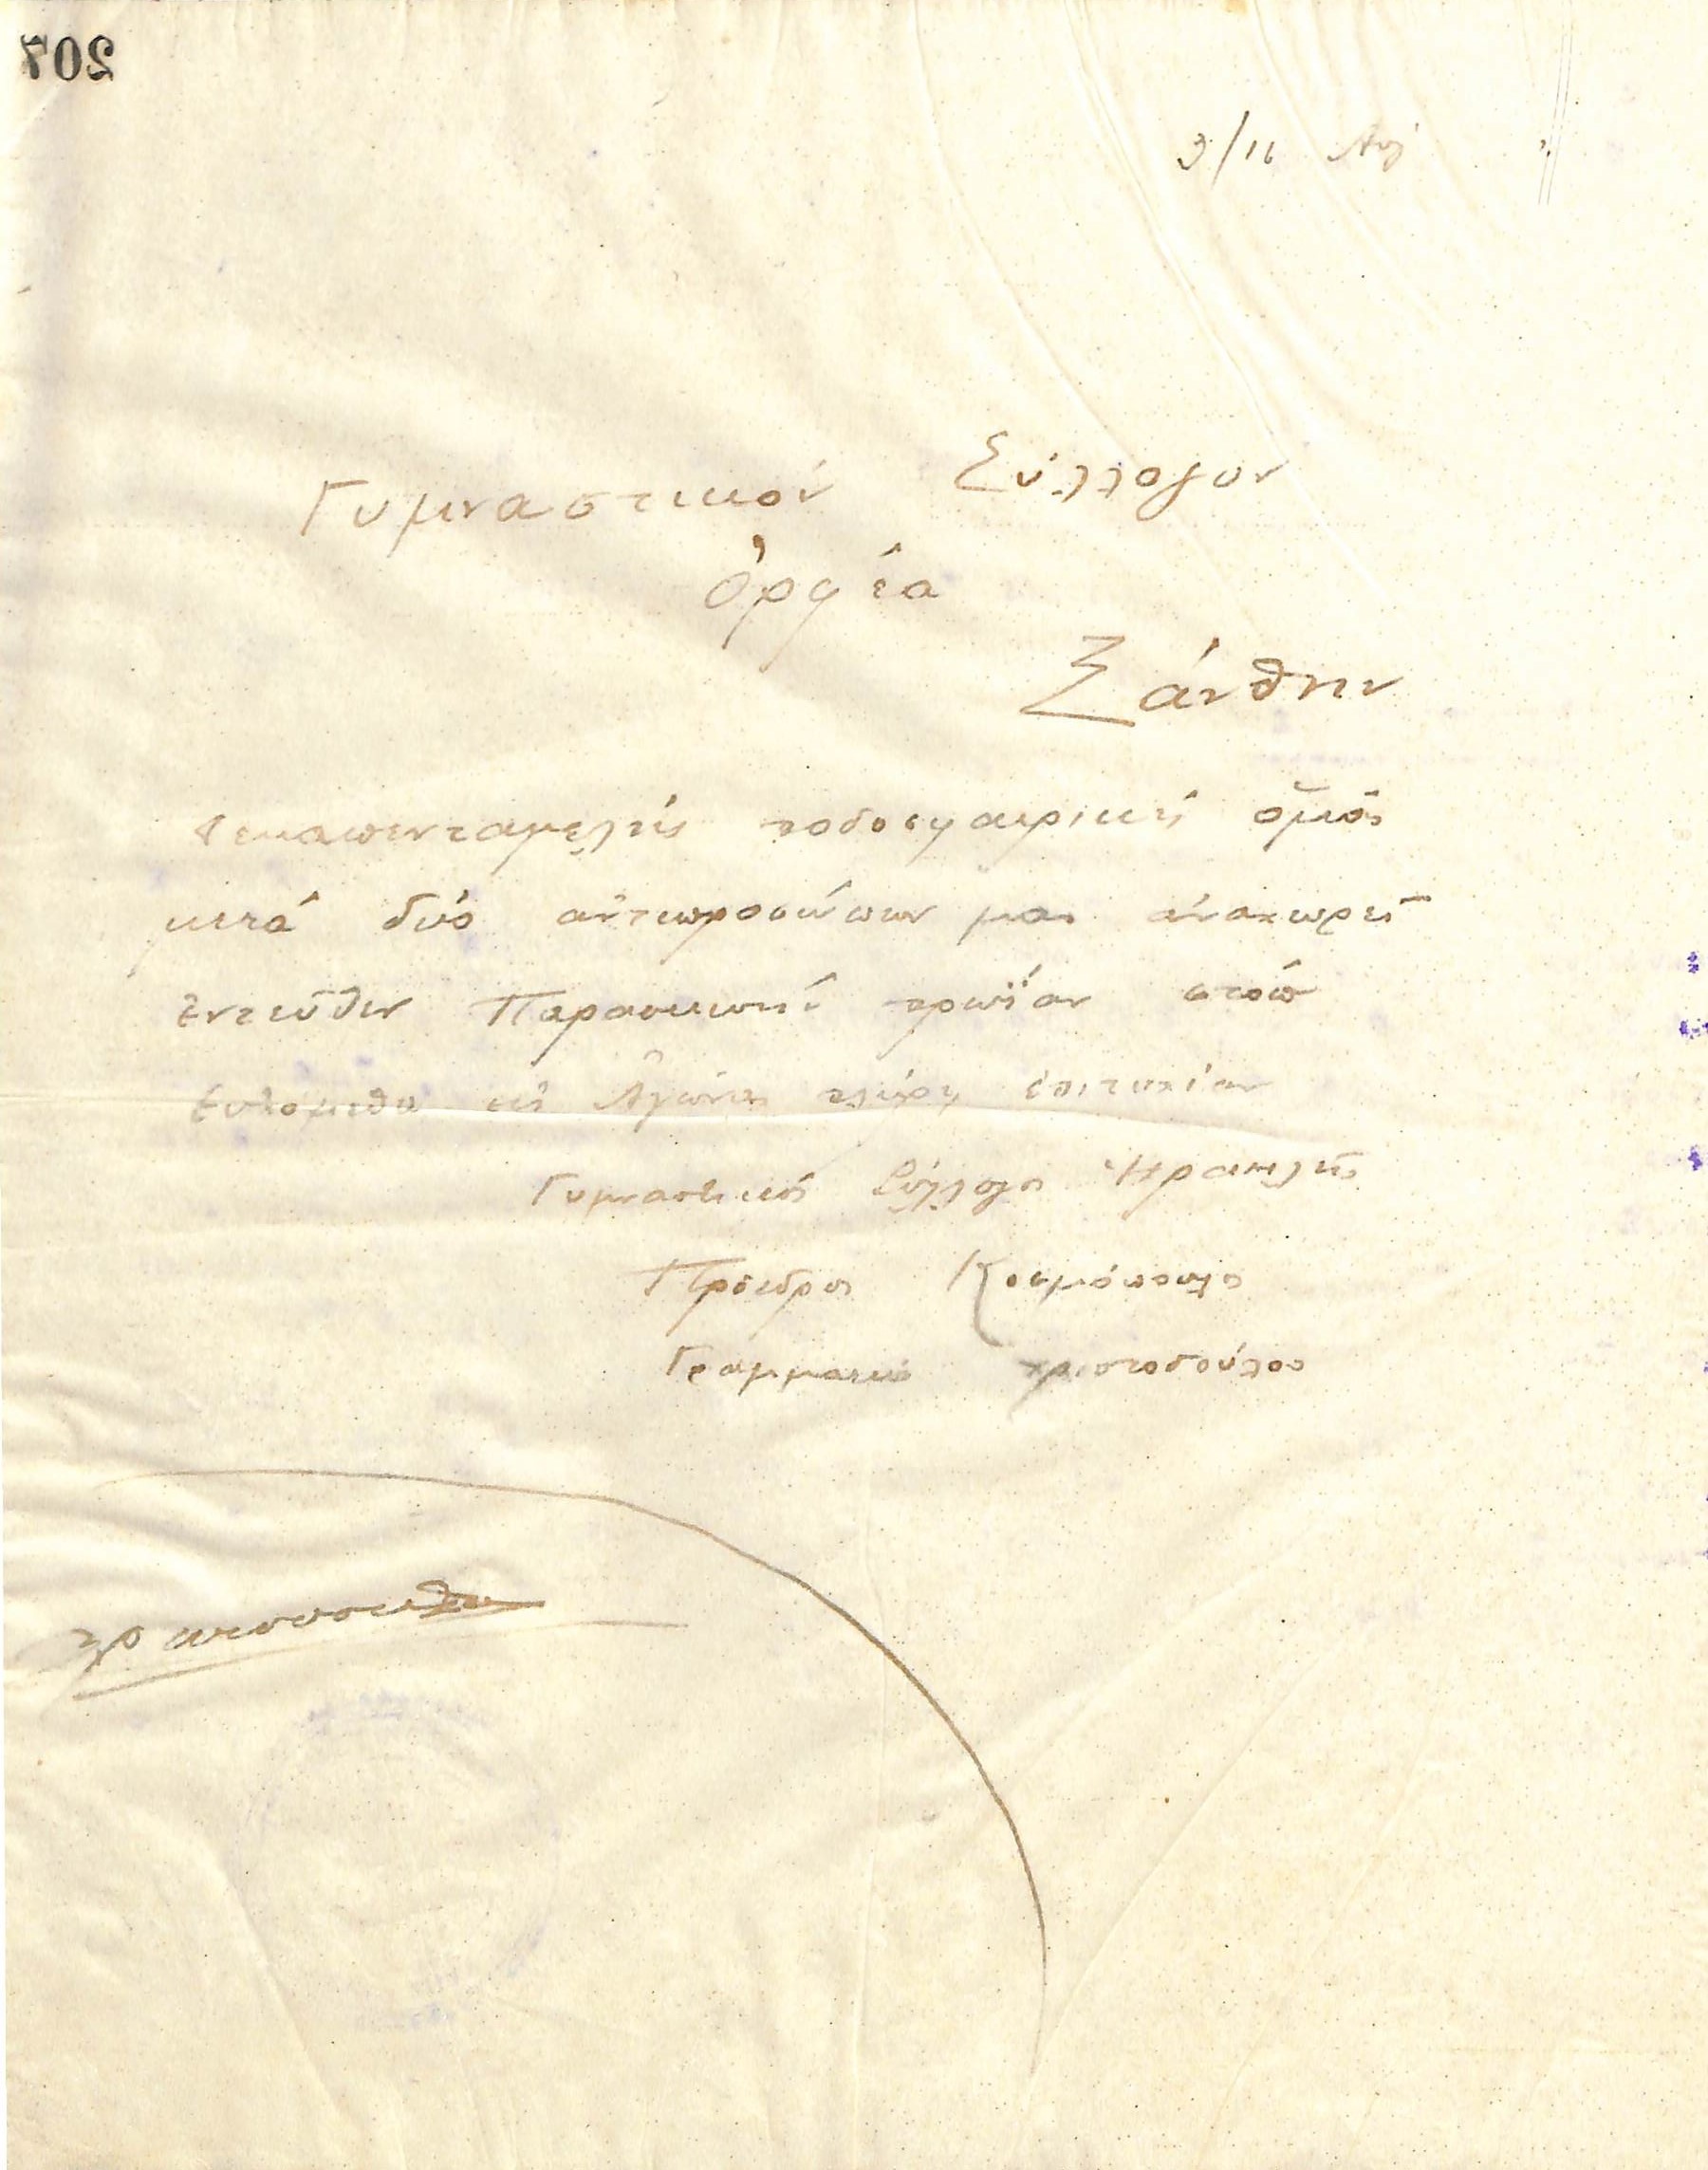 207
3/16 Αὐγ
Γυμναστικόν Σύλλογον
Ὀρφέα
Ξάνθην
Δεκαπενταμελής ποδοσφαιρική ὁμάς
μετά δύο ἀντιπροσώπων μας ἀναχωρεῖ
ἐντεῦθεν Παρασκευήν πρωΐαν στόπ
Εὐχόμεθα εἰς Ἀγῶνας πλήρη ἐπιτυχίαν
Γυμναστικός Σύλλογος Ἡρακλῆς
Πρόεδρος Κοσμόπουλος
Γραμματεύς Χριστοδούλου